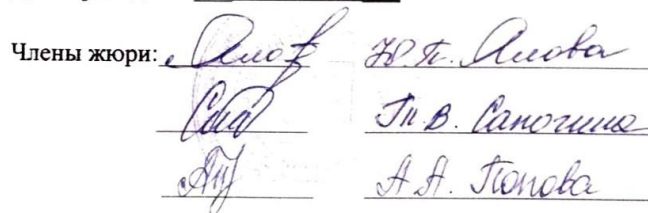 Члены жюри: Ю.П. Алова
Т.В. Сапогина
А.А. Попова